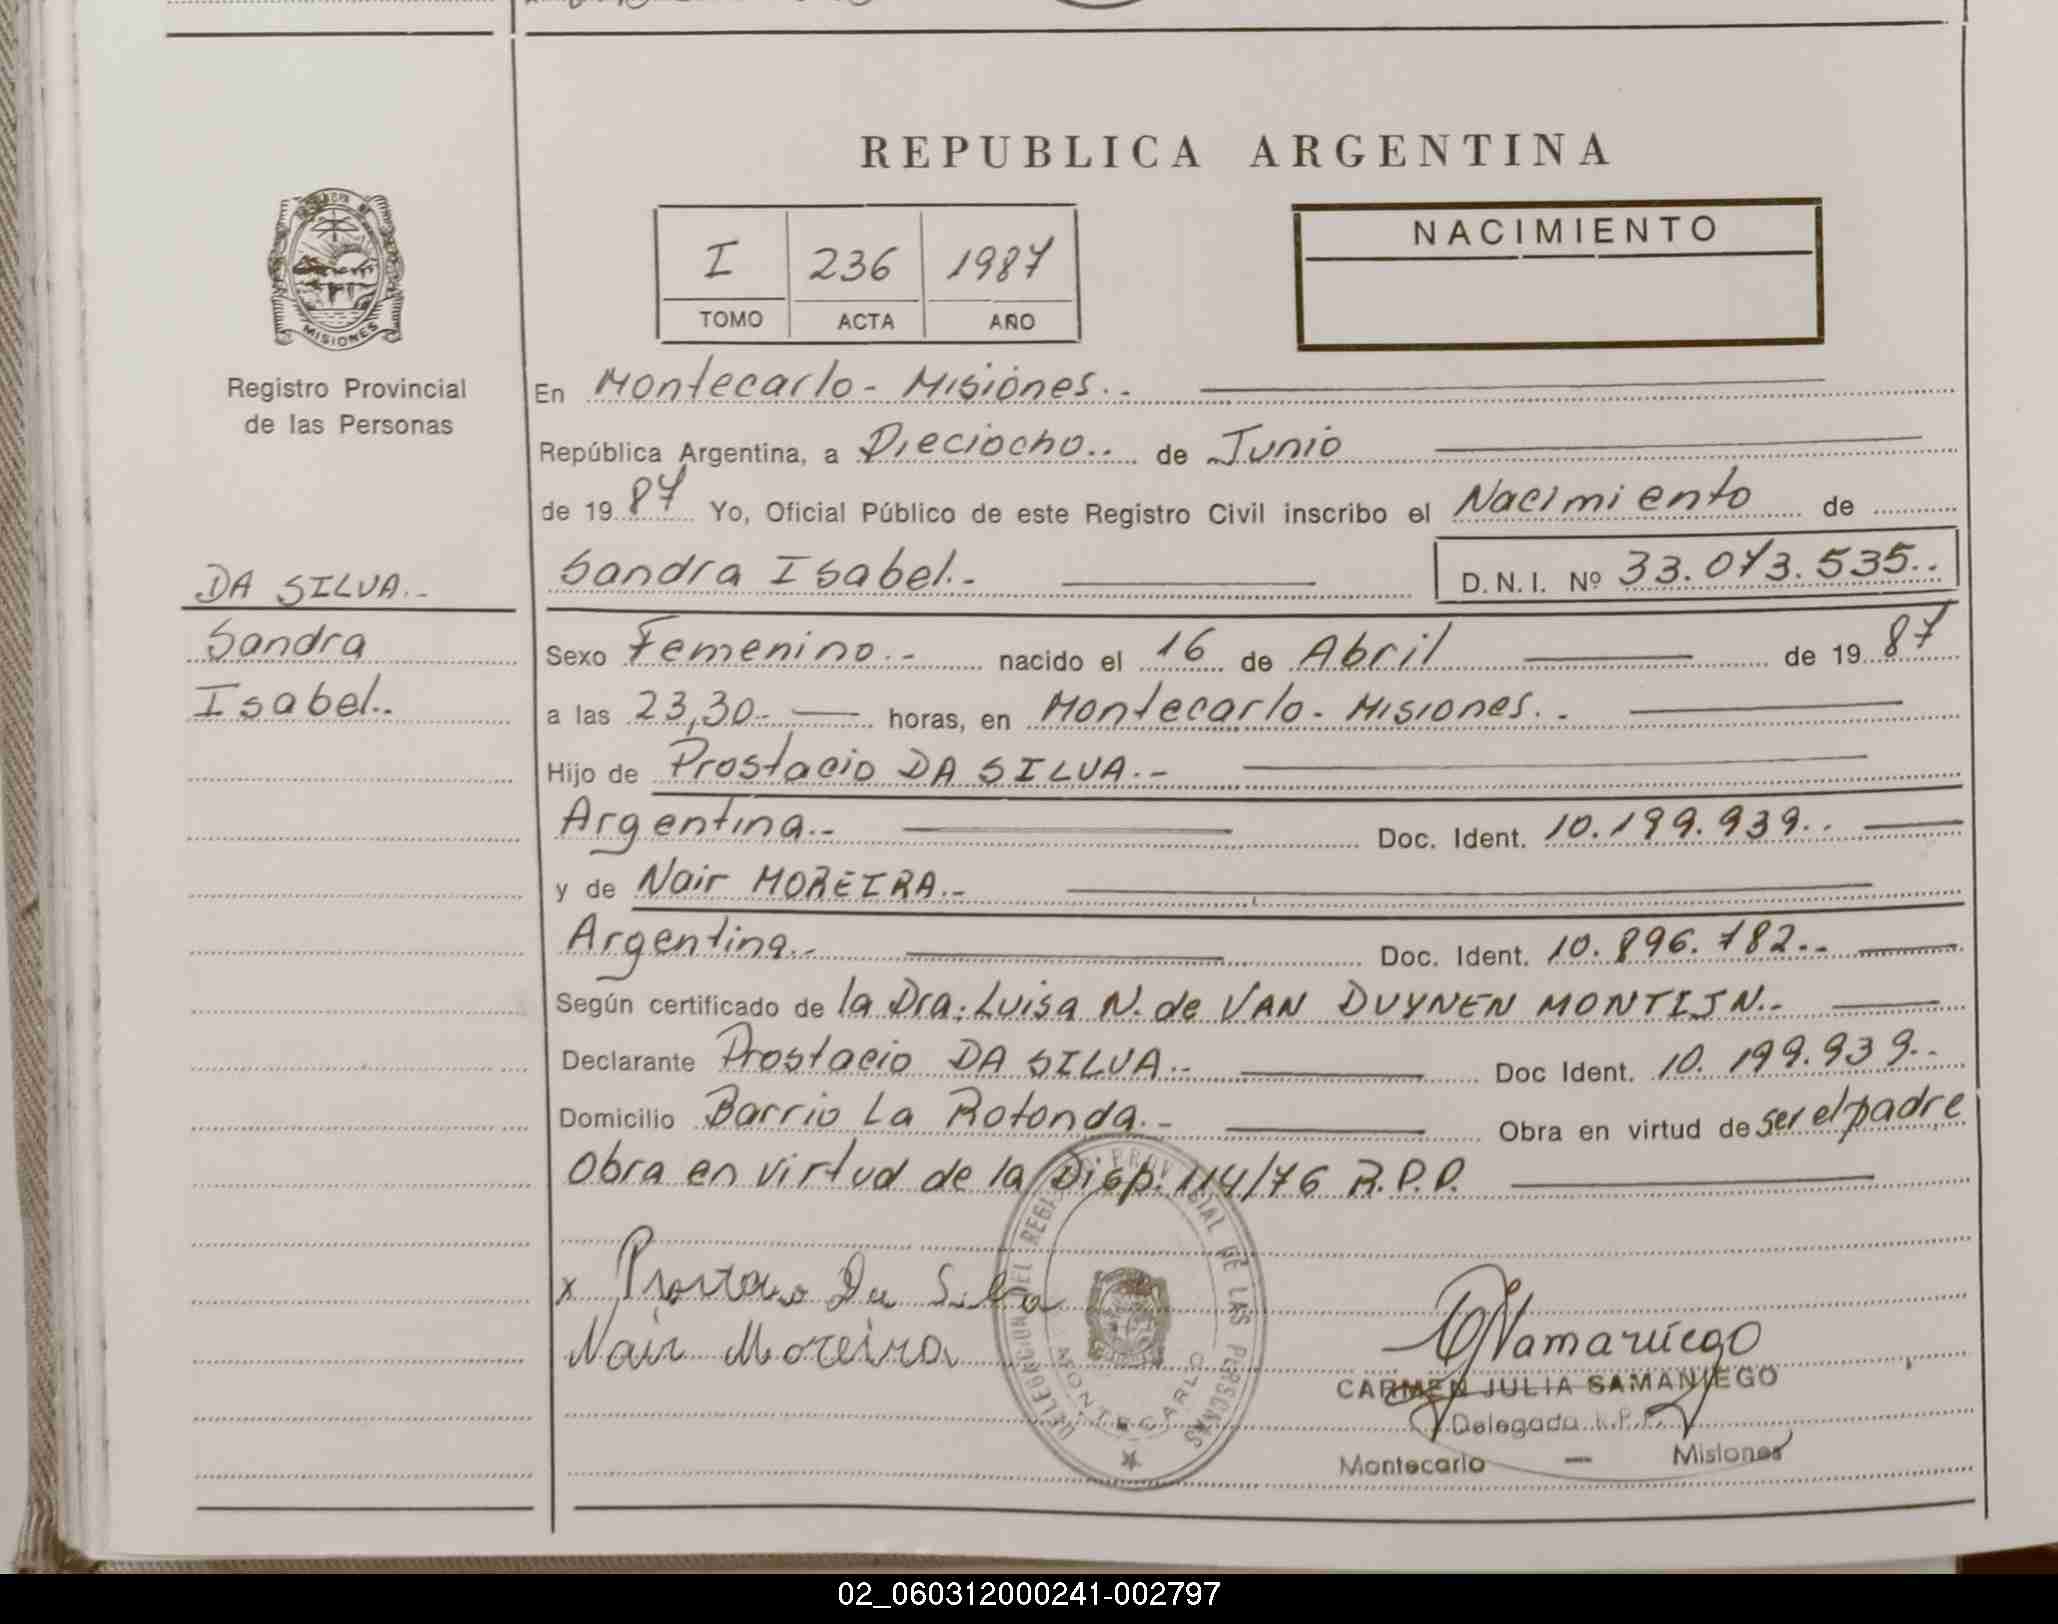 REPUBLICA ARGENTINA
NACIMIENTO
I 236 1987
TOMO ACTA AÑO
MISIONES
Registro Provincial
de las Personas
En Montecarlo - Misiones.-
República Argentina, a Dieciocho.. de Junio
de 1987 Yo, Oficial Público de este Registro Civil inscribo el Nacimiento de
DA SILVA.-
Sandra Isabel.- D.N.I. Nº 33.073.535..
Sandra
Isabel..
Sexo Femenino.- nacido el 16 de Abril de 1987
a las 23,30- horas, en Montecarlo - Misiones.-
Hijo de Prostacio DA SILVA.-
Argentina.- Doc. Ident. 10.199.939..
y de Nair MOREIRA.-
Argentina.- Doc. Ident. 10.896.782..
Según certificado de la Dra: Luisa N. de VAN DUYNEN MONTIJN.-
Declarante Prostacio DA SILVA.. Doc Ident. 10.199.939..
Domicilio Barrio La Rotonda.- Obra en virtud de ser el padre
Obra en virtud de la Disp. 114/76 R.P.P.
x Prostacio Da Silva
Nair Moreira
DELEGACION DEL REGISTRO PROVINCIAL DE LAS PERSONAS
MONTECARLO
CARMEN JULIA SAMANIEGO
Delegada R.P.P.
Montecarlo — Misiones
02_060312000241-002797